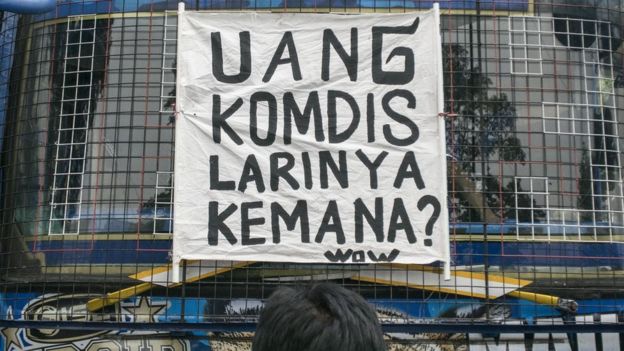 UANG
KOMDIS
LARINYA
KEMANA?
WOW